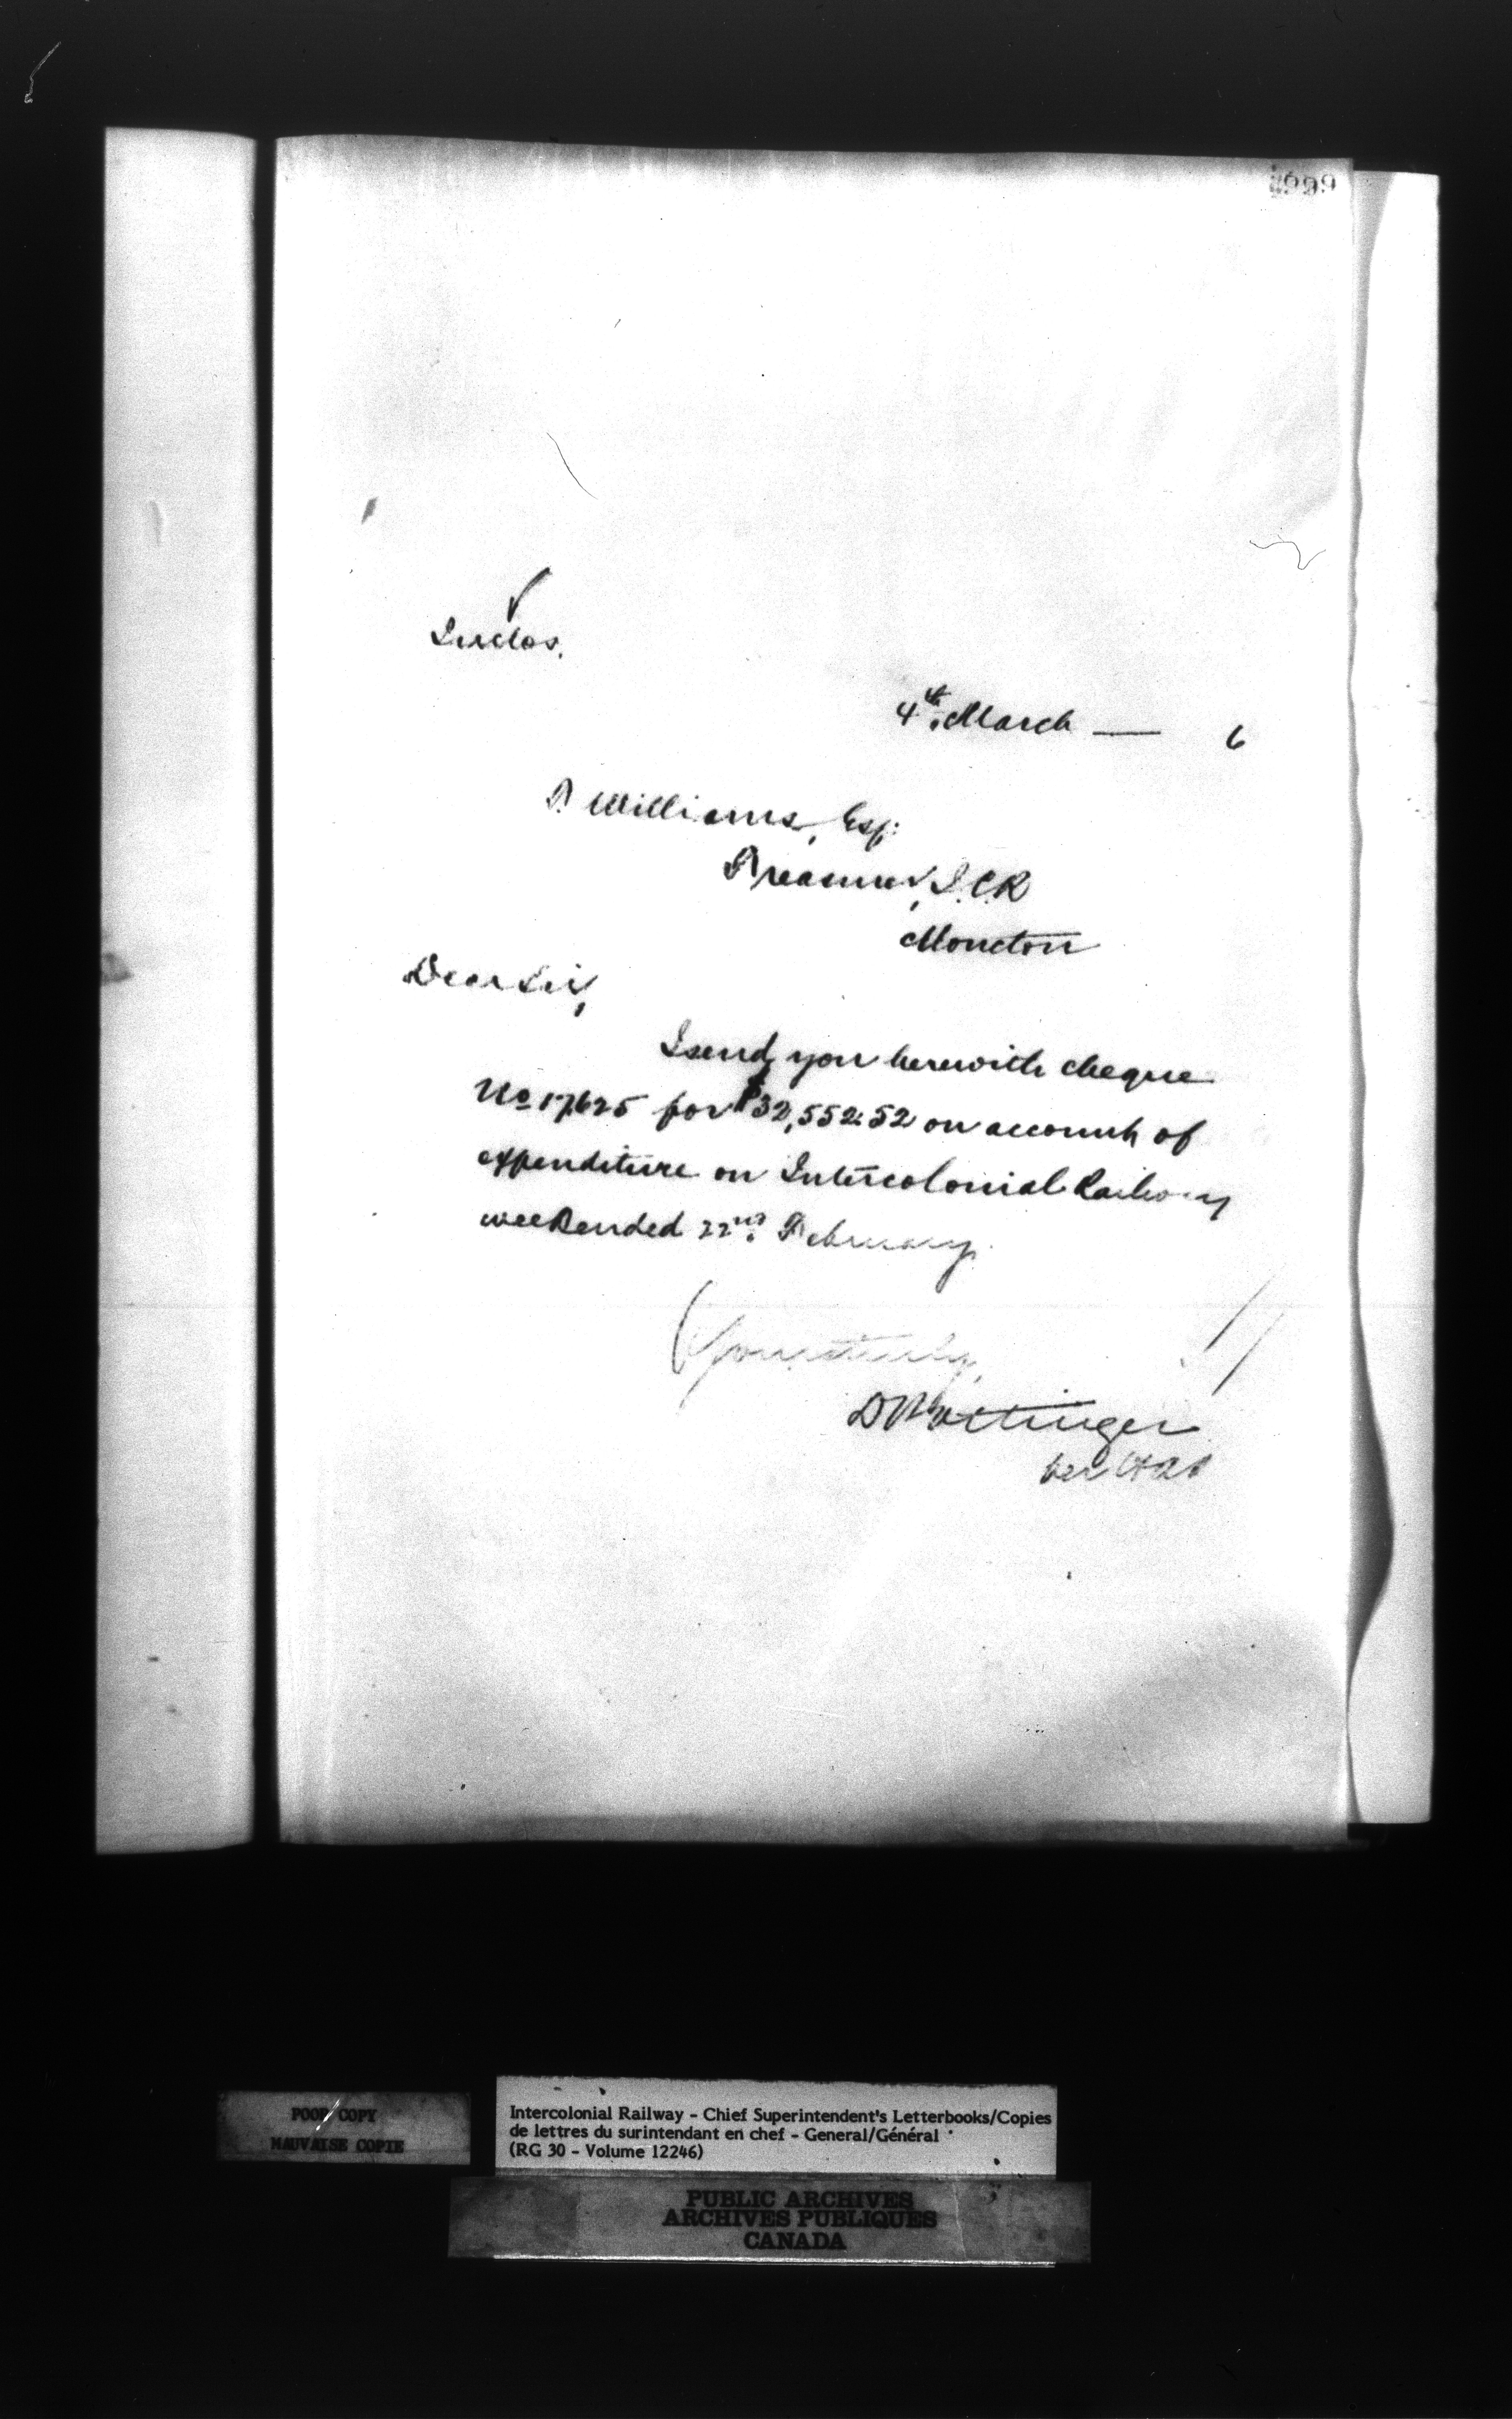 999
Inclos.
4th March — 6
T. Williams, Esq:
Treasurer, I.C.R
Moncton
Dear Sir,
I send you herewith cheque
No 17625 for $32,552.52 on account of
expenditure on Intercolonial Railway
week ended 22nd February.
Yours truly,
D Pottinger
per
POOR COPY
MAUVAISE COPIE
Intercolonial Railway - Chief Superintendent's Letterbooks/Copies
de lettres du surintendant en chef - General/Général
(RG 30 - Volume 12246)
PUBLIC ARCHIVES
ARCHIVES PUBLIQUES
CANADA